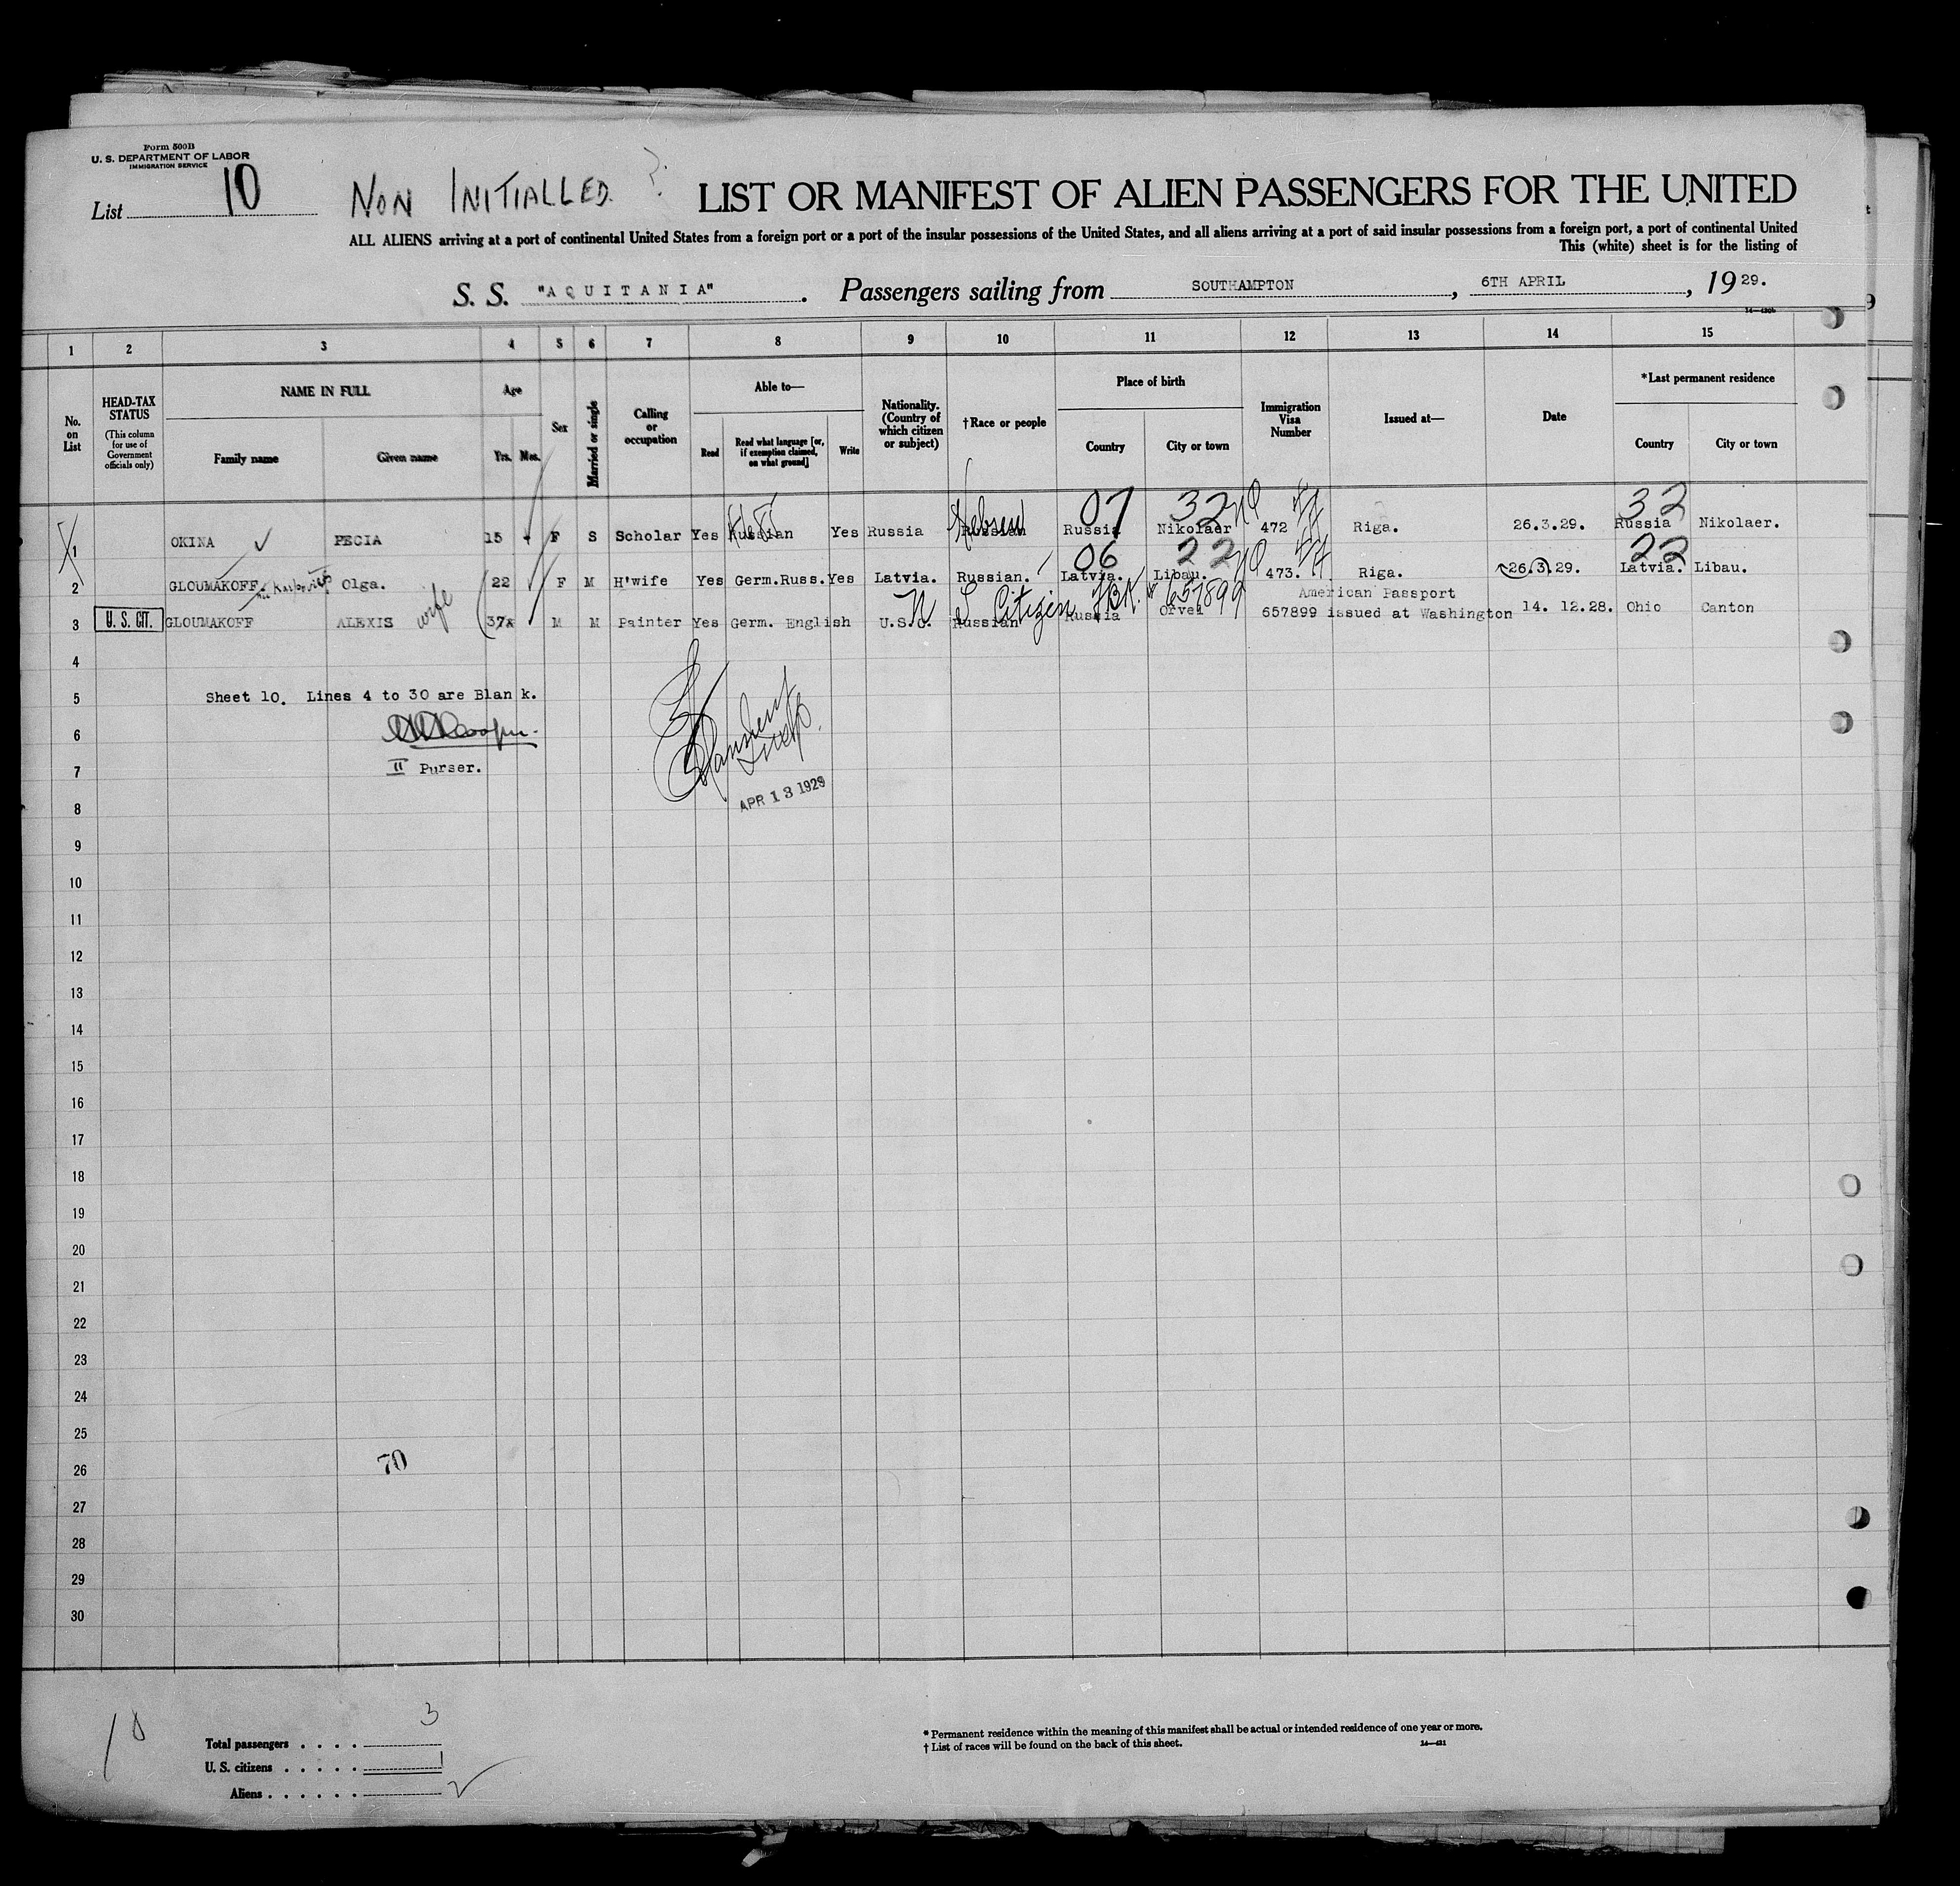 Form 500B
U. S. DEPARTMENT OF LABOR
IMMIGRATION SERVICE
List 10
NON INITIALLED ?
LIST OR MANIFEST OF ALIEN PASSENGERS FOR THE UNITED
ALL ALIENS arriving at a port of continental United States from a foreign port or a port of the insular possessions of the United States, and all aliens arriving at a port of said insular possessions from a foreign port, a port of continental United
This (white) sheet is for the listing of
S. S. "AQUITANIA". Passengers sailing from SOUTHAMPTON, 6TH APRIL, 1929.
14—430b
1 2 3 4 5 6 7 8 9 10 11 12 13 14 15
No. on List
HEAD-TAX STATUS (This column for use of Government officials only)
NAME IN FULL
Family name Given name
Age
Yrs. Mos.
Sex
Married or single
Calling or occupation
Able to—
Read Read what language [or, if exemption claimed, on what ground] Write
Nationality. (Country of which citizen or subject)
†Race or people
Place of birth
Country City or town
Immigration Visa Number
Issued at—
Date
*Last permanent residence
Country City or town
07 32 NQ 32
Hebrew
1 OKINA PECIA 15 F S Scholar Yes Russian Yes Russia Russian Russia Nikolaer 472 Riga. 26.3.29. Russia Nikolaer.
06 22 NQ 22
2 GLOUMAKOFF. Olga. 22 F M H'wife Yes Germ.Russ. Yes Latvia. Russian. Latvia. Libau. 473. Riga. 26.3.29. Latvia. Libau.
wife
Citizen 657899
American Passport
3 U. S. CIT. GLOUMAKOFF ALEXIS 37 M M Painter Yes Germ. English U.S.C. Russian Russia Orvel 657899 issued at Washington 14. 12.28. Ohio Canton
4
5 Sheet 10. Lines 4 to 30 are Blank.
6
7 II Purser.
8 APR 13 1929
9
10
11
12
13
14
15
16
17
18
19
20
21
22
23
24
25
26 70
27
28
29
30
10
Total passengers . . . . 3
U. S. citizens . . . . . 1
Aliens . . . . . . 2
* Permanent residence within the meaning of this manifest shall be actual or intended residence of one year or more.
† List of races will be found on the back of this sheet.
14—421